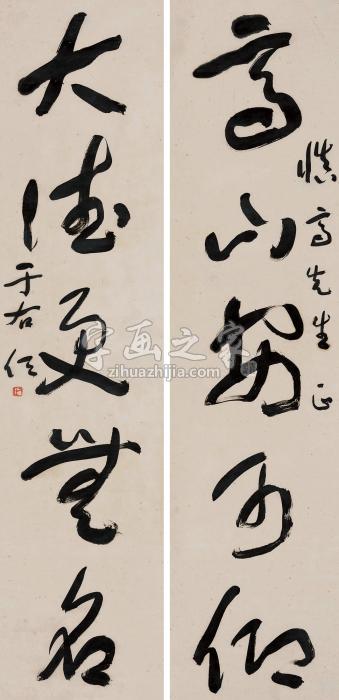 慎高先生正
高山安可仰
大德更無名
于右任
字画之家
zihuazhijia.com